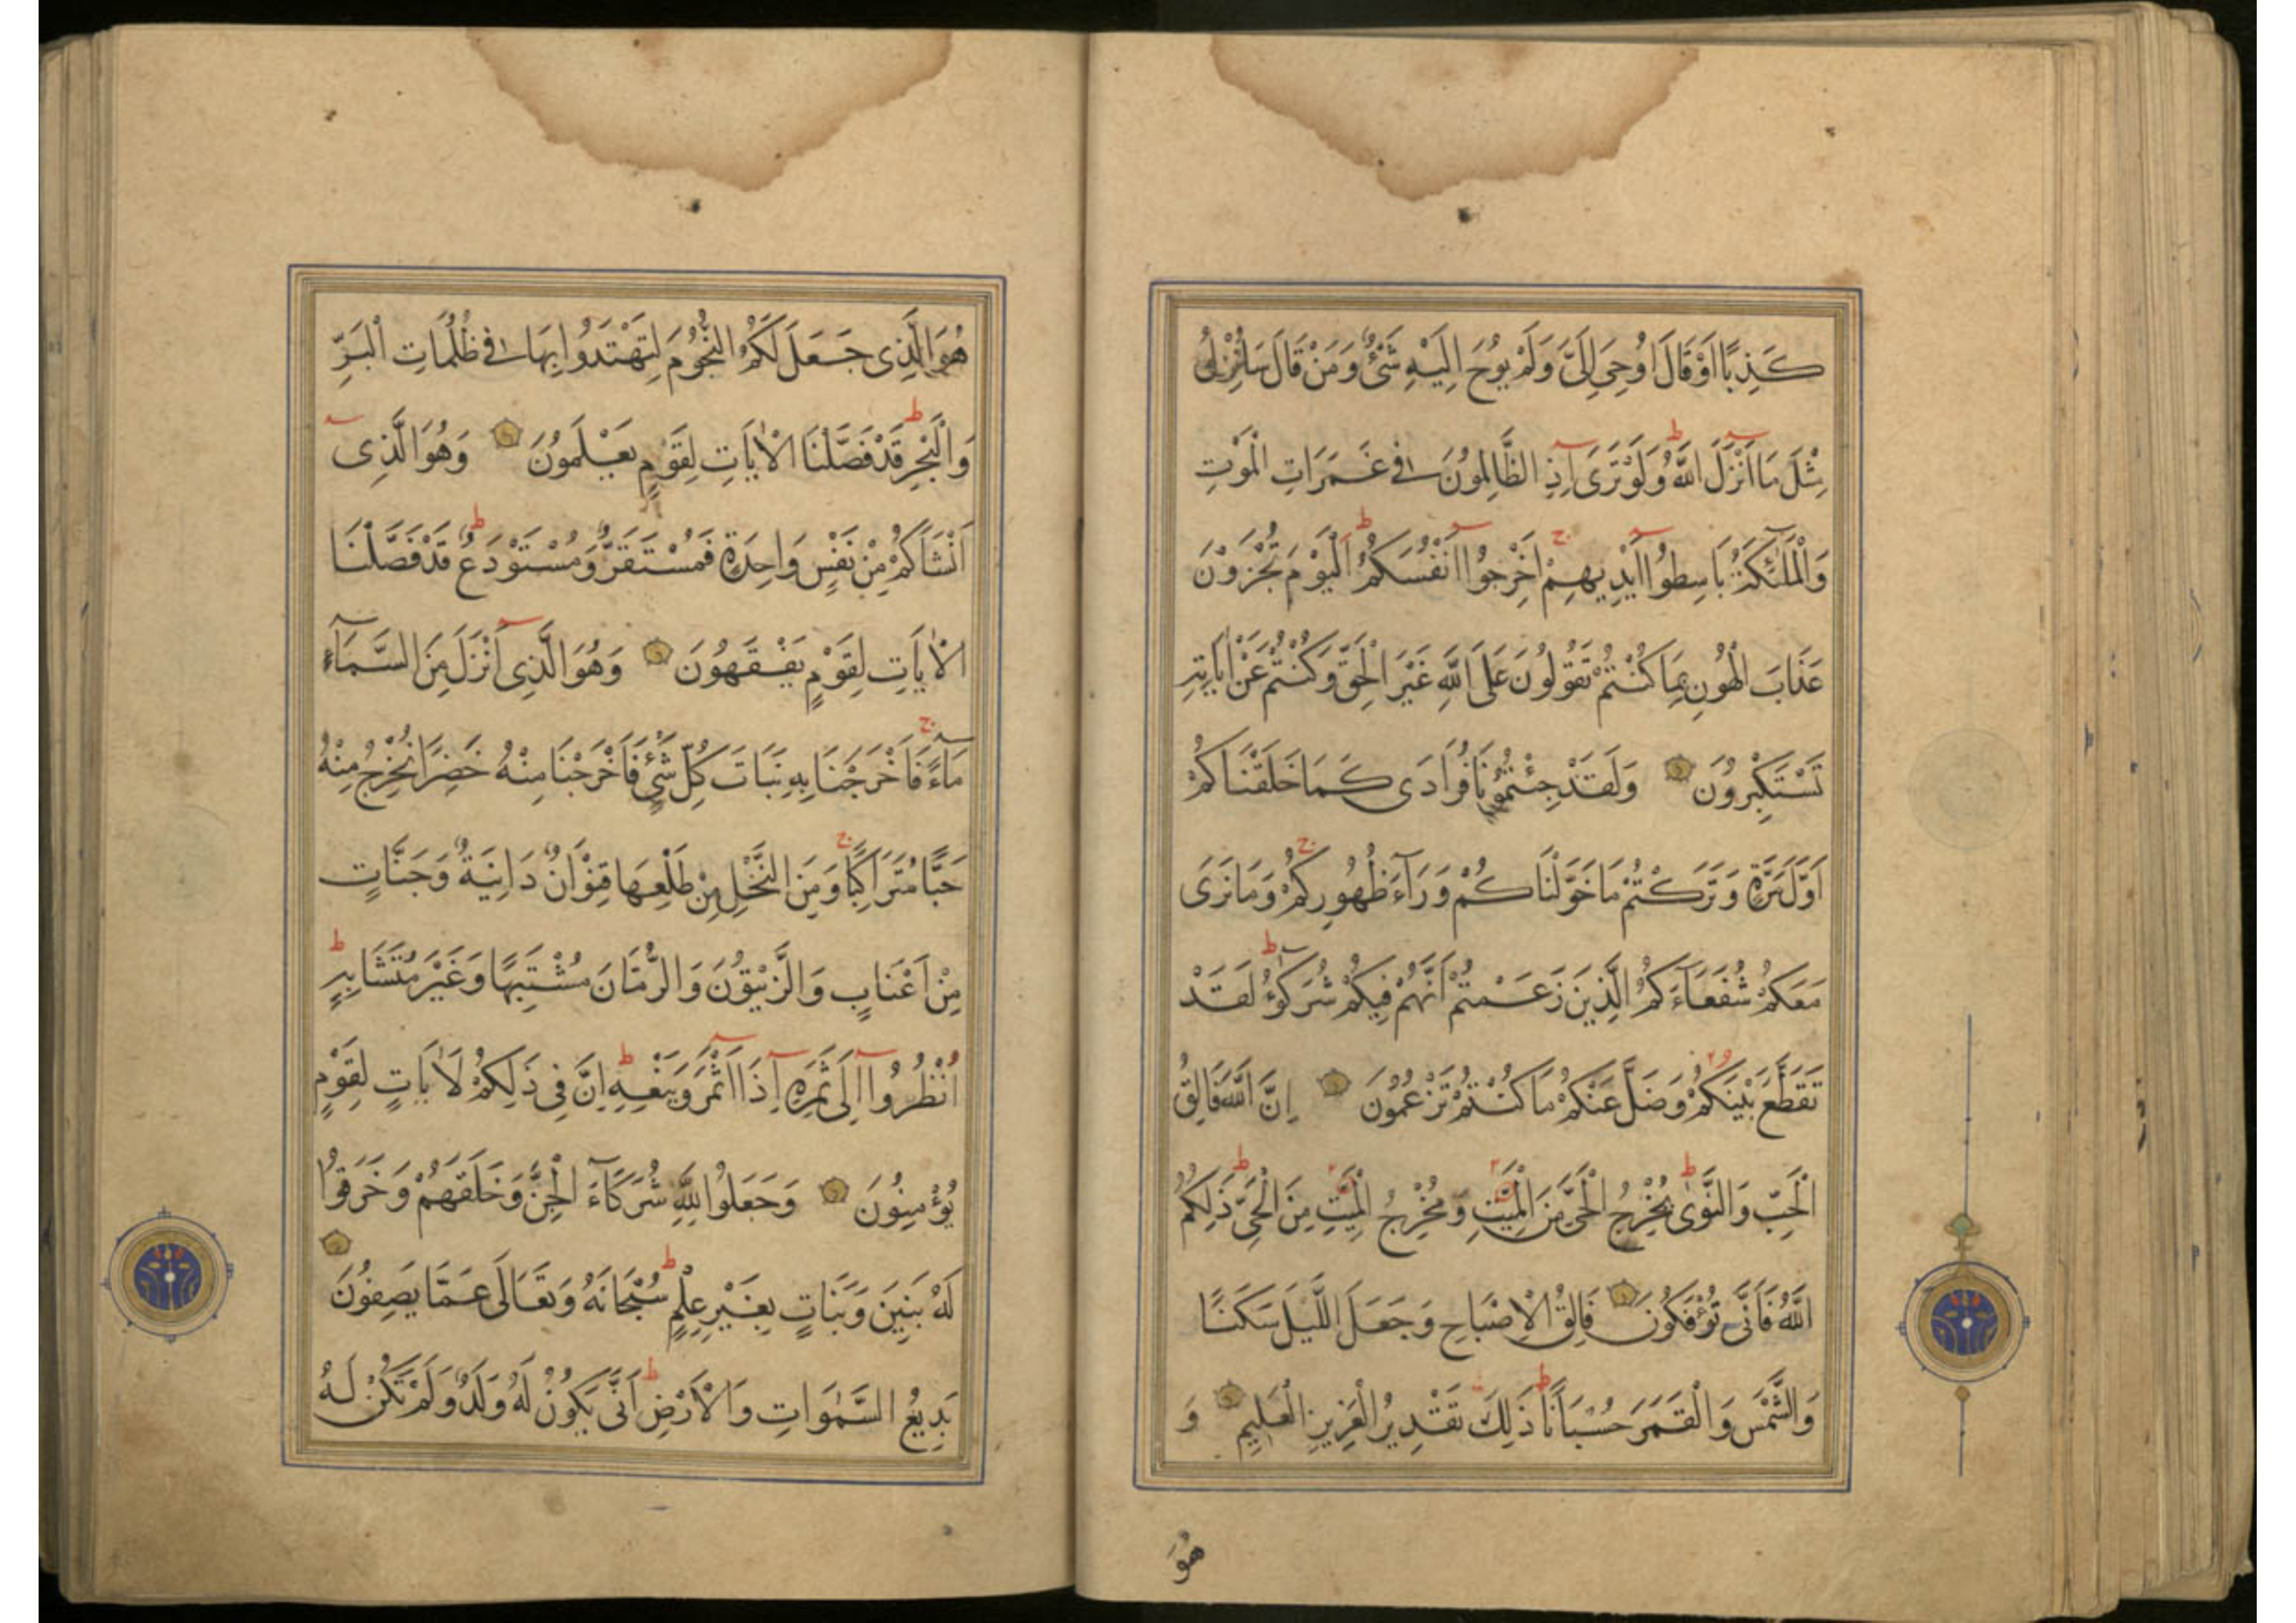 كَذِبًا اَوْ قَالَ اُوحِىَ اِلَىَّ وَلَمْ يُوحَ اِلَيْهِ شَىْءٌ وَمَنْ قَالَ سَاُنْزِلُ
مِثْلَ مَا اَنْزَلَ اللّٰهُ وَلَوْ تَرَى اِذِ الظَّالِمُونَ فِى غَمَرَاتِ الْمَوْتِ
وَالْمَلٰئِكَةُ بَاسِطُوا اَيْدِيهِمْ اَخْرِجُوا اَنْفُسَكُمُ اَلْيَوْمَ تُجْزَوْنَ
عَذَابَ الْهُونِ بِمَا كُنْتُمْ تَقُولُونَ عَلَى اللّٰهِ غَيْرَ الْحَقِّ وَكُنْتُمْ عَنْ اٰيَاتِهِ
تَسْتَكْبِرُونَ وَلَقَدْ جِئْتُمُونَا فُرَادَى كَمَا خَلَقْنَاكُمْ
اَوَّلَ مَرَّةٍ وَتَرَكْتُمْ مَا خَوَّلْنَاكُمْ وَرَآءَ ظُهُورِكُمْ وَمَا نَرَى
مَعَكُمْ شُفَعَآءَكُمُ الَّذِينَ زَعَمْتُمْ اَنَّهُمْ فِيكُمْ شُرَكٰٓؤُ لَقَدْ
تَقَطَّعَ بَيْنَكُمْ وَضَلَّ عَنْكُمْ مَا كُنْتُمْ تَزْعُمُونَ اِنَّ اللّٰهَ فَالِقُ
الْحَبِّ وَالنَّوٰى يُخْرِجُ الْحَىَّ مِنَ الْمَيِّتِ وَمُخْرِجُ الْمَيِّتِ مِنَ الْحَىِّ ذَلِكُمُ
اللّٰهُ فَاَنَّى تُؤْفَكُونَ فَالِقُ الْاِصْبَاحِ وَجَعَلَ اللَّيْلَ سَكَنًا
وَالشَّمْسَ وَالْقَمَرَ حُسْبَانًا ذَلِكَ تَقْدِيرُ الْعَزِيزِ الْعَلِيمِ وَ
هُوَ
هُوَ الَّذِى جَعَلَ لَكُمُ النُّجُومَ لِتَهْتَدُوا بِهَا فِى ظُلُمَاتِ الْبَرِّ
وَالْبَحْرِ قَدْ فَصَّلْنَا الْاٰيَاتِ لِقَوْمٍ يَعْلَمُونَ وَهُوَ الَّذِى
اَنْشَاَكُمْ مِنْ نَفْسٍ وَاحِدَةٍ فَمُسْتَقَرٌّ وَمُسْتَوْدَعٌ قَدْ فَصَّلْنَا
الْاٰيَاتِ لِقَوْمٍ يَفْقَهُونَ وَهُوَ الَّذِى اَنْزَلَ مِنَ السَّمَآءِ
مَآءً فَاَخْرَجْنَا بِهِ نَبَاتَ كُلِّ شَىْءٍ فَاَخْرَجْنَا مِنْهُ خَضِرًا نُخْرِجُ مِنْهُ
حَبًّا مُتَرَاكِبًا وَمِنَ النَّخْلِ مِنْ طَلْعِهَا قِنْوَانٌ دَانِيَةٌ وَجَنَّاتٍ
مِنْ اَعْنَابٍ وَالزَّيْتُونَ وَالرُّمَّانَ مُشْتَبِهًا وَغَيْرَ مُتَشَابِهٍ
اُنْظُرُوا اِلَى ثَمَرِهِ اِذَا اَثْمَرَ وَيَنْعِهِ اِنَّ فِى ذَلِكُمْ لَاٰيَاتٍ لِقَوْمٍ
يُؤْمِنُونَ وَجَعَلُوا لِلّٰهِ شُرَكَآءَ الْجِنَّ وَخَلَقَهُمْ وَخَرَقُوا
لَهُ بَنِينَ وَبَنَاتٍ بِغَيْرِ عِلْمٍ سُبْحَانَهُ وَتَعَالَى عَمَّا يَصِفُونَ
بَدِيعُ السَّمٰوَاتِ وَالْاَرْضِ اَنَّى يَكُونُ لَهُ وَلَدٌ وَلَمْ تَكُنْ لَهُ